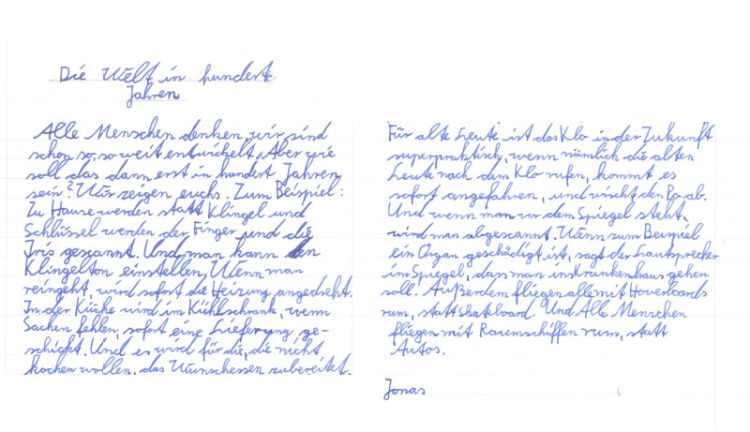 Die Welt in hundert
Jahren
Alle Menschen denken, wir sind
schon so, so weit entwickelt. Aber wie
soll das dann erst in hundert Jahren
sein? Wir zeigen euchs. Zum Beispiel:
Zu Hause werden statt Klingel und
Schlüssel werden der Finger und die
Iris gescannt. Und man kann den
Klingelton einstellen. Wenn man
reingeht, wird sofort die Heizung angedreht.
In der Küche wird im Kühlschrank, wenn
Sachen fehlen, sofort eine Lieferung ge-
schickt. Und es wird für die, die nicht
kochen wollen, das Wunschessen zubereitet.
Für alte Leute ist das Klo in der Zukunft
superpraktisch, wenn nämlich die alten
Leute nach dem Klo rufen, kommt es
sofort angefahren, und wischt den Po ab.
Und wenn man vor dem Spiegel steht,
wird man abgescannt. Wenn zum Beispiel
ein Organ geschädigt ist, sagt der Lautsprecher
im Spiegel, dass man ins Krankenhaus gehen
soll. Außerdem fliegen alle mit Hoverboards
rum, statt Skateboard. Und Alle Menschen
fliegen mit Raumschiffen rum, statt
Autos.
Jonas